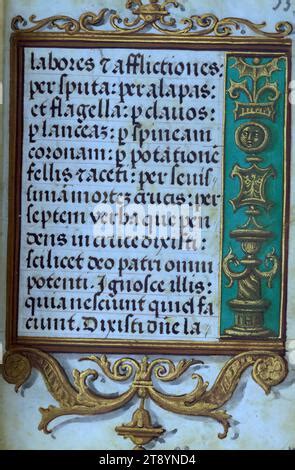 labores ⁊ afflictiones:
per sputa: per alapas:
et flagella: p̲ clavos:
p̲ lanceaz: p̲ spineam
coronam: p̲ potatione
fellis ⁊ aceti: per
mortez crucis: per
septem verba que pen
dens in cruce dixisti:
scilicet deo patri omni
potenti. Ignosce illis:
quia nesciunt quid fa
ciunt. Dixisti dñe la
alamy
alamy
2S8YND4